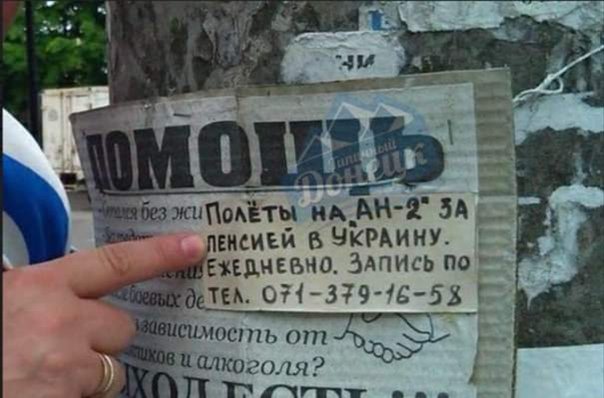 ПОМОЩЬ
Типичный
Донецк
без жи
ПОЛЁТЫ НА „АН-2" ЗА
ПЕНСИЕЙ В УКРАИНУ.
ЕЖЕДНЕВНО. ЗАПИСЬ ПО
ТЕЛ. 071-379-16-58
боевых де
зависимость от
и алкоголя?